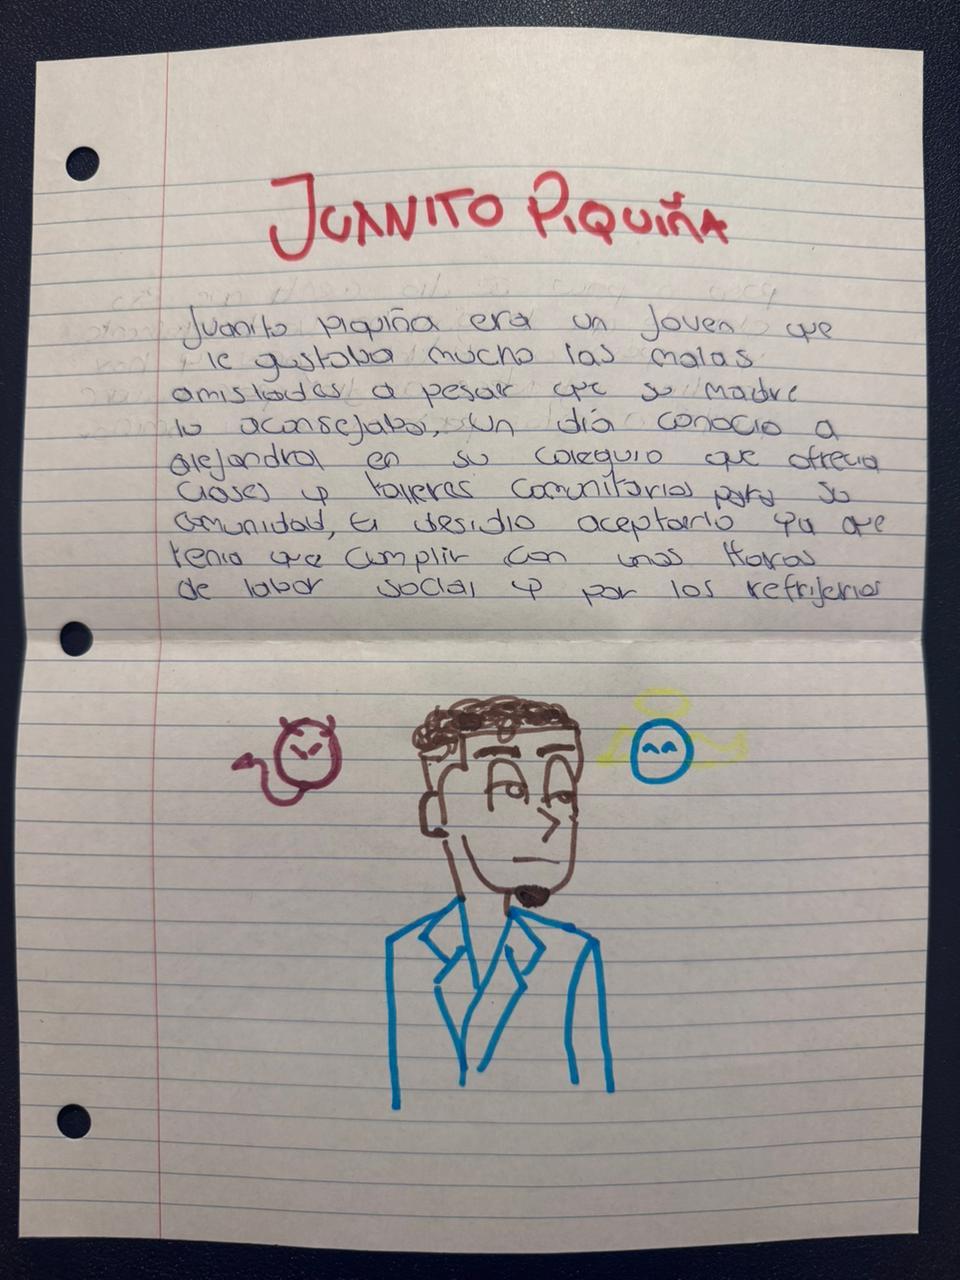 JUANITO PIQUIÑA
Juanito piquiña era un joven que
le gustaba mucho las malas
amistades a pesar que su madre
lo aconsejaba, un día conocio a
alejandra en su coleguio que ofrecia
clases y talleres comunitarios para su
comunidad, El desidio aceptarlo ya que
tenia que cumplir con unas Horas
de labor social y por los refrijerios